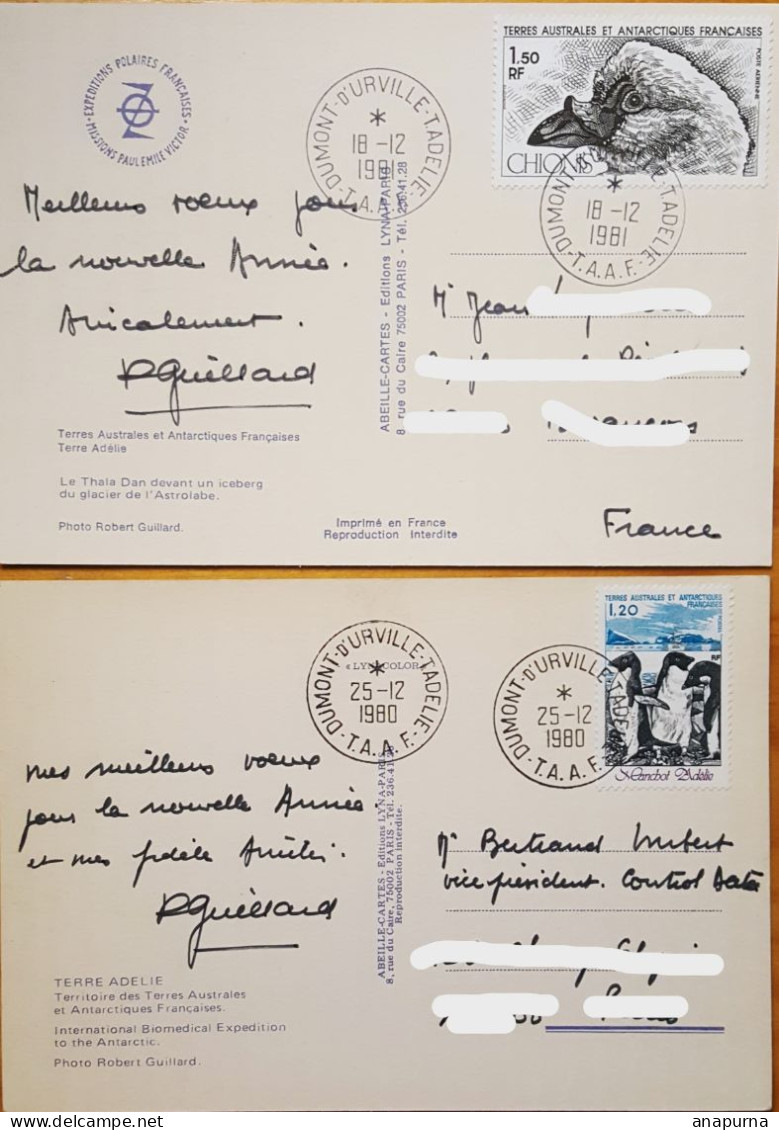 EXPEDITIONS POLAIRES FRANÇAISES
MISSIONS PAUL EMILE VICTOR
DUMONT-D'URVILLE-T.ADELIE
18-12
1981
T.A.A.F.
TERRES AUSTRALES ET ANTARCTIQUES FRANÇAISES
1.50
RF
POSTE AERIENNE
CHIONIS
DUMONT-D'URVILLE-T.ADELIE
18-12
1981
T.A.A.F.
Meilleurs voeux pour
la nouvelle Année.
Amicalement.
RGuillard
ABEILLE-CARTES - Editions LYNA-PARIS
8, rue du Caire 75002 PARIS - Tél. 236.41.28
Mr Jean
France
Terres Australes et Antarctiques Françaises
Terre Adélie
Le Thala Dan devant un iceberg
du glacier de l'Astrolabe.
Photo Robert Guillard.
Imprimé en France
Reproduction Interdite
« LYNACOLOR
DUMONT-D'URVILLE-T.ADELIE
25-12
1980
T.A.A.F.
DUMONT-D'URVILLE-T.ADELIE
25-12
1980
T.A.A.F.
TERRES AUSTRALES ET ANTARCTIQUES
FRANÇAISES
1.20
RF
Manchot Adélie
mes meilleurs voeux
pour la nouvelle Année.
et mes fidèle Amitiés.
RGuillard
ABEILLE-CARTES - Editions LYNA-PARIS
8, rue du Caire, 75002 PARIS - Tél. 236.41.28
Reproduction interdite.
Mr Bertrand Imbert
vice président. Control Data
TERRE ADELIE
Territoire des Terres Australes
et Antarctiques Françaises.
International Biomedical Expedition
to the Antarctic.
Photo Robert Guillard.
anapurna